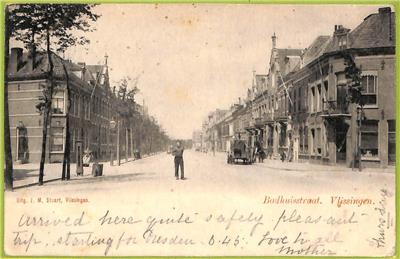 Uitg. J. M. Stuart, Vlissingen.
Badhuisstraat. Vlissingen.
Arrived here quite safely pleasant
trip, starting for Dresden 0.45. Love to all
Mother
Thursday